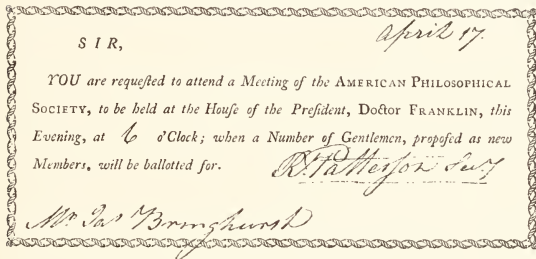 April 17.
SIR,
YOU are requeſted to attend a Meeting of the AMERICAN PHILOSOPHICAL
SOCIETY, to be held at the Houſe of the Preſident, DOCTOR FRANKLIN, this
Evening, at 6 o'Clock; when a Number of Gentlemen, propoſed as new
Members, will be ballotted for. R. Patterson Secy
Mr. Jas. Bringhurst